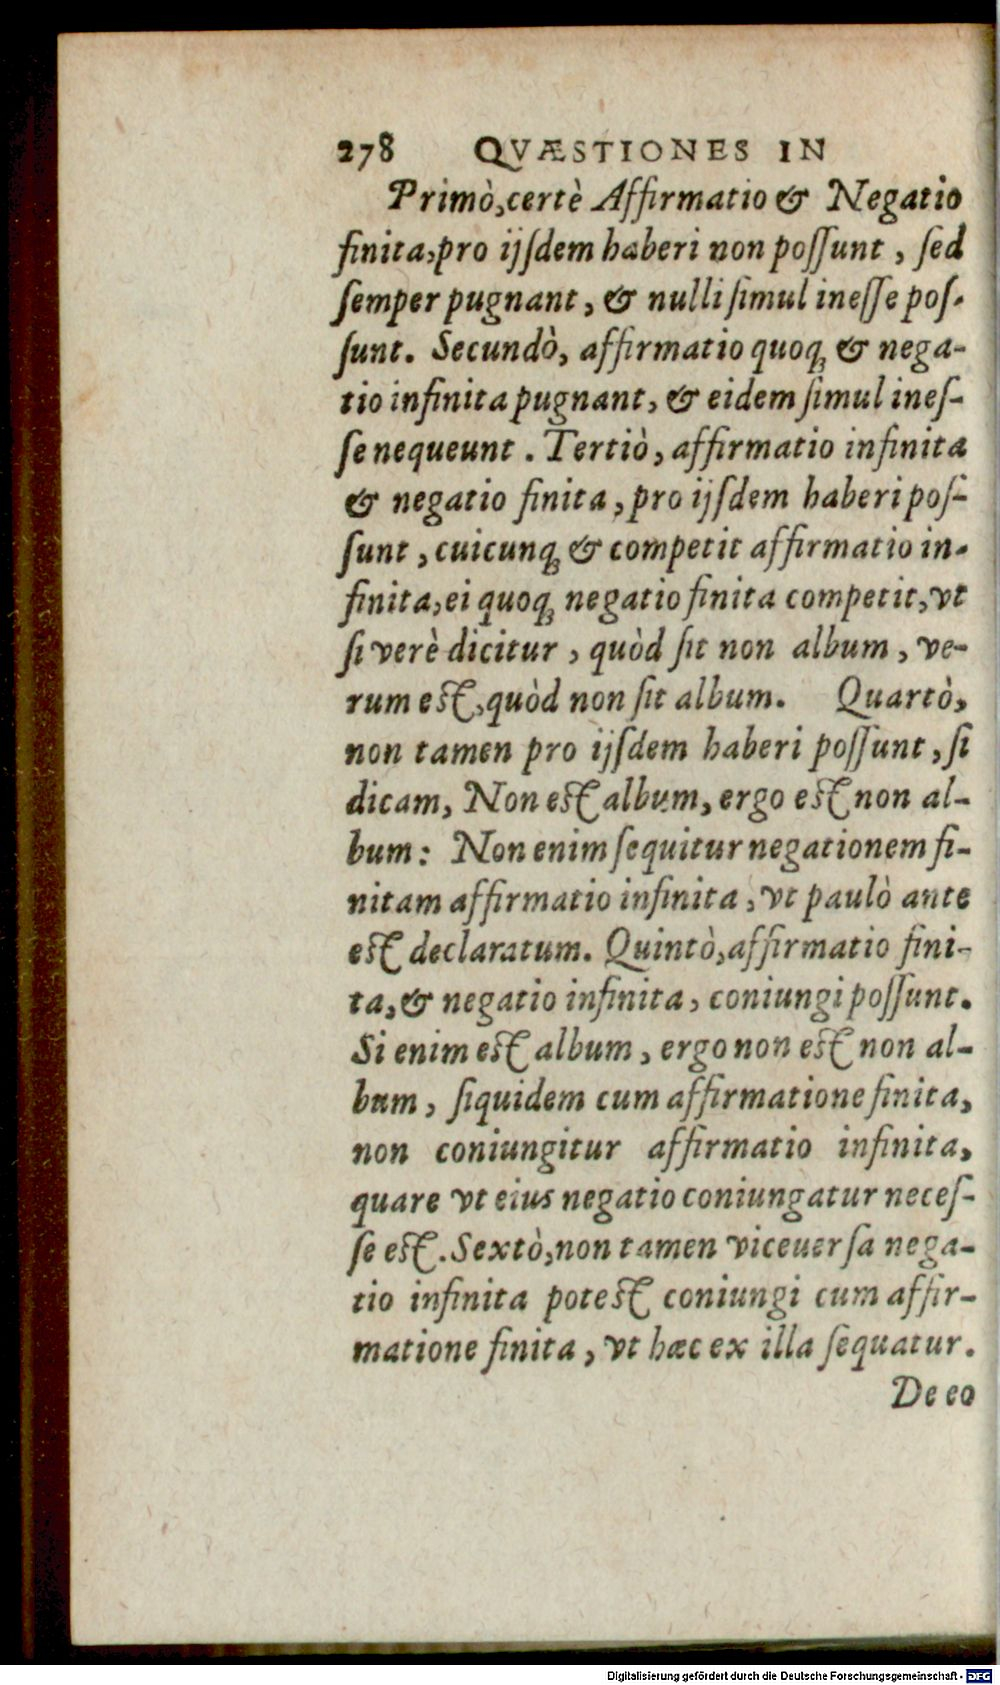 278 QVÆSTIONES IN
Primò, certè Affirmatio & Negatio
finita, pro ijſdem haberi non poſſunt, ſed
ſemper pugnant, & nulli ſimul ineſſe poſ-
ſunt. Secundò, affirmatio quoq; & nega-
tio infinita pugnant, & eidem ſimul ineſ-
ſe nequeunt. Tertiò, affirmatio infinita
& negatio finita, pro ijſdem haberi poſ-
ſunt, cuicunq; & competit affirmatio in-
finita, ei quoq; negatio finita competit, vt
ſi verè dicitur, quòd ſit non album, ve-
rum eſt, quòd non ſit album. Quartò,
non tamen pro ijſdem haberi poſſunt, ſi
dicam, Non eſt album, ergo eſt non al-
bum: Non enim ſequitur negationem fi-
nitam affirmatio infinita, vt paulò ante
eſt declaratum. Quintò, affirmatio fini-
ta, & negatio infinita, coniungi poſſunt.
Si enim eſt album, ergo non eſt non al-
bum, ſiquidem cum affirmatione finita,
non coniungitur affirmatio infinita,
quare vt eius negatio coniungatur neceſ-
ſe eſt. Sextò, non tamen viceuerſa nega-
tio infinita poteſt coniungi cum affir-
matione finita, vt hæc ex illa ſequatur.
De eo
Digitalisierung gefördert durch die Deutsche Forschungsgemeinschaft - DFG